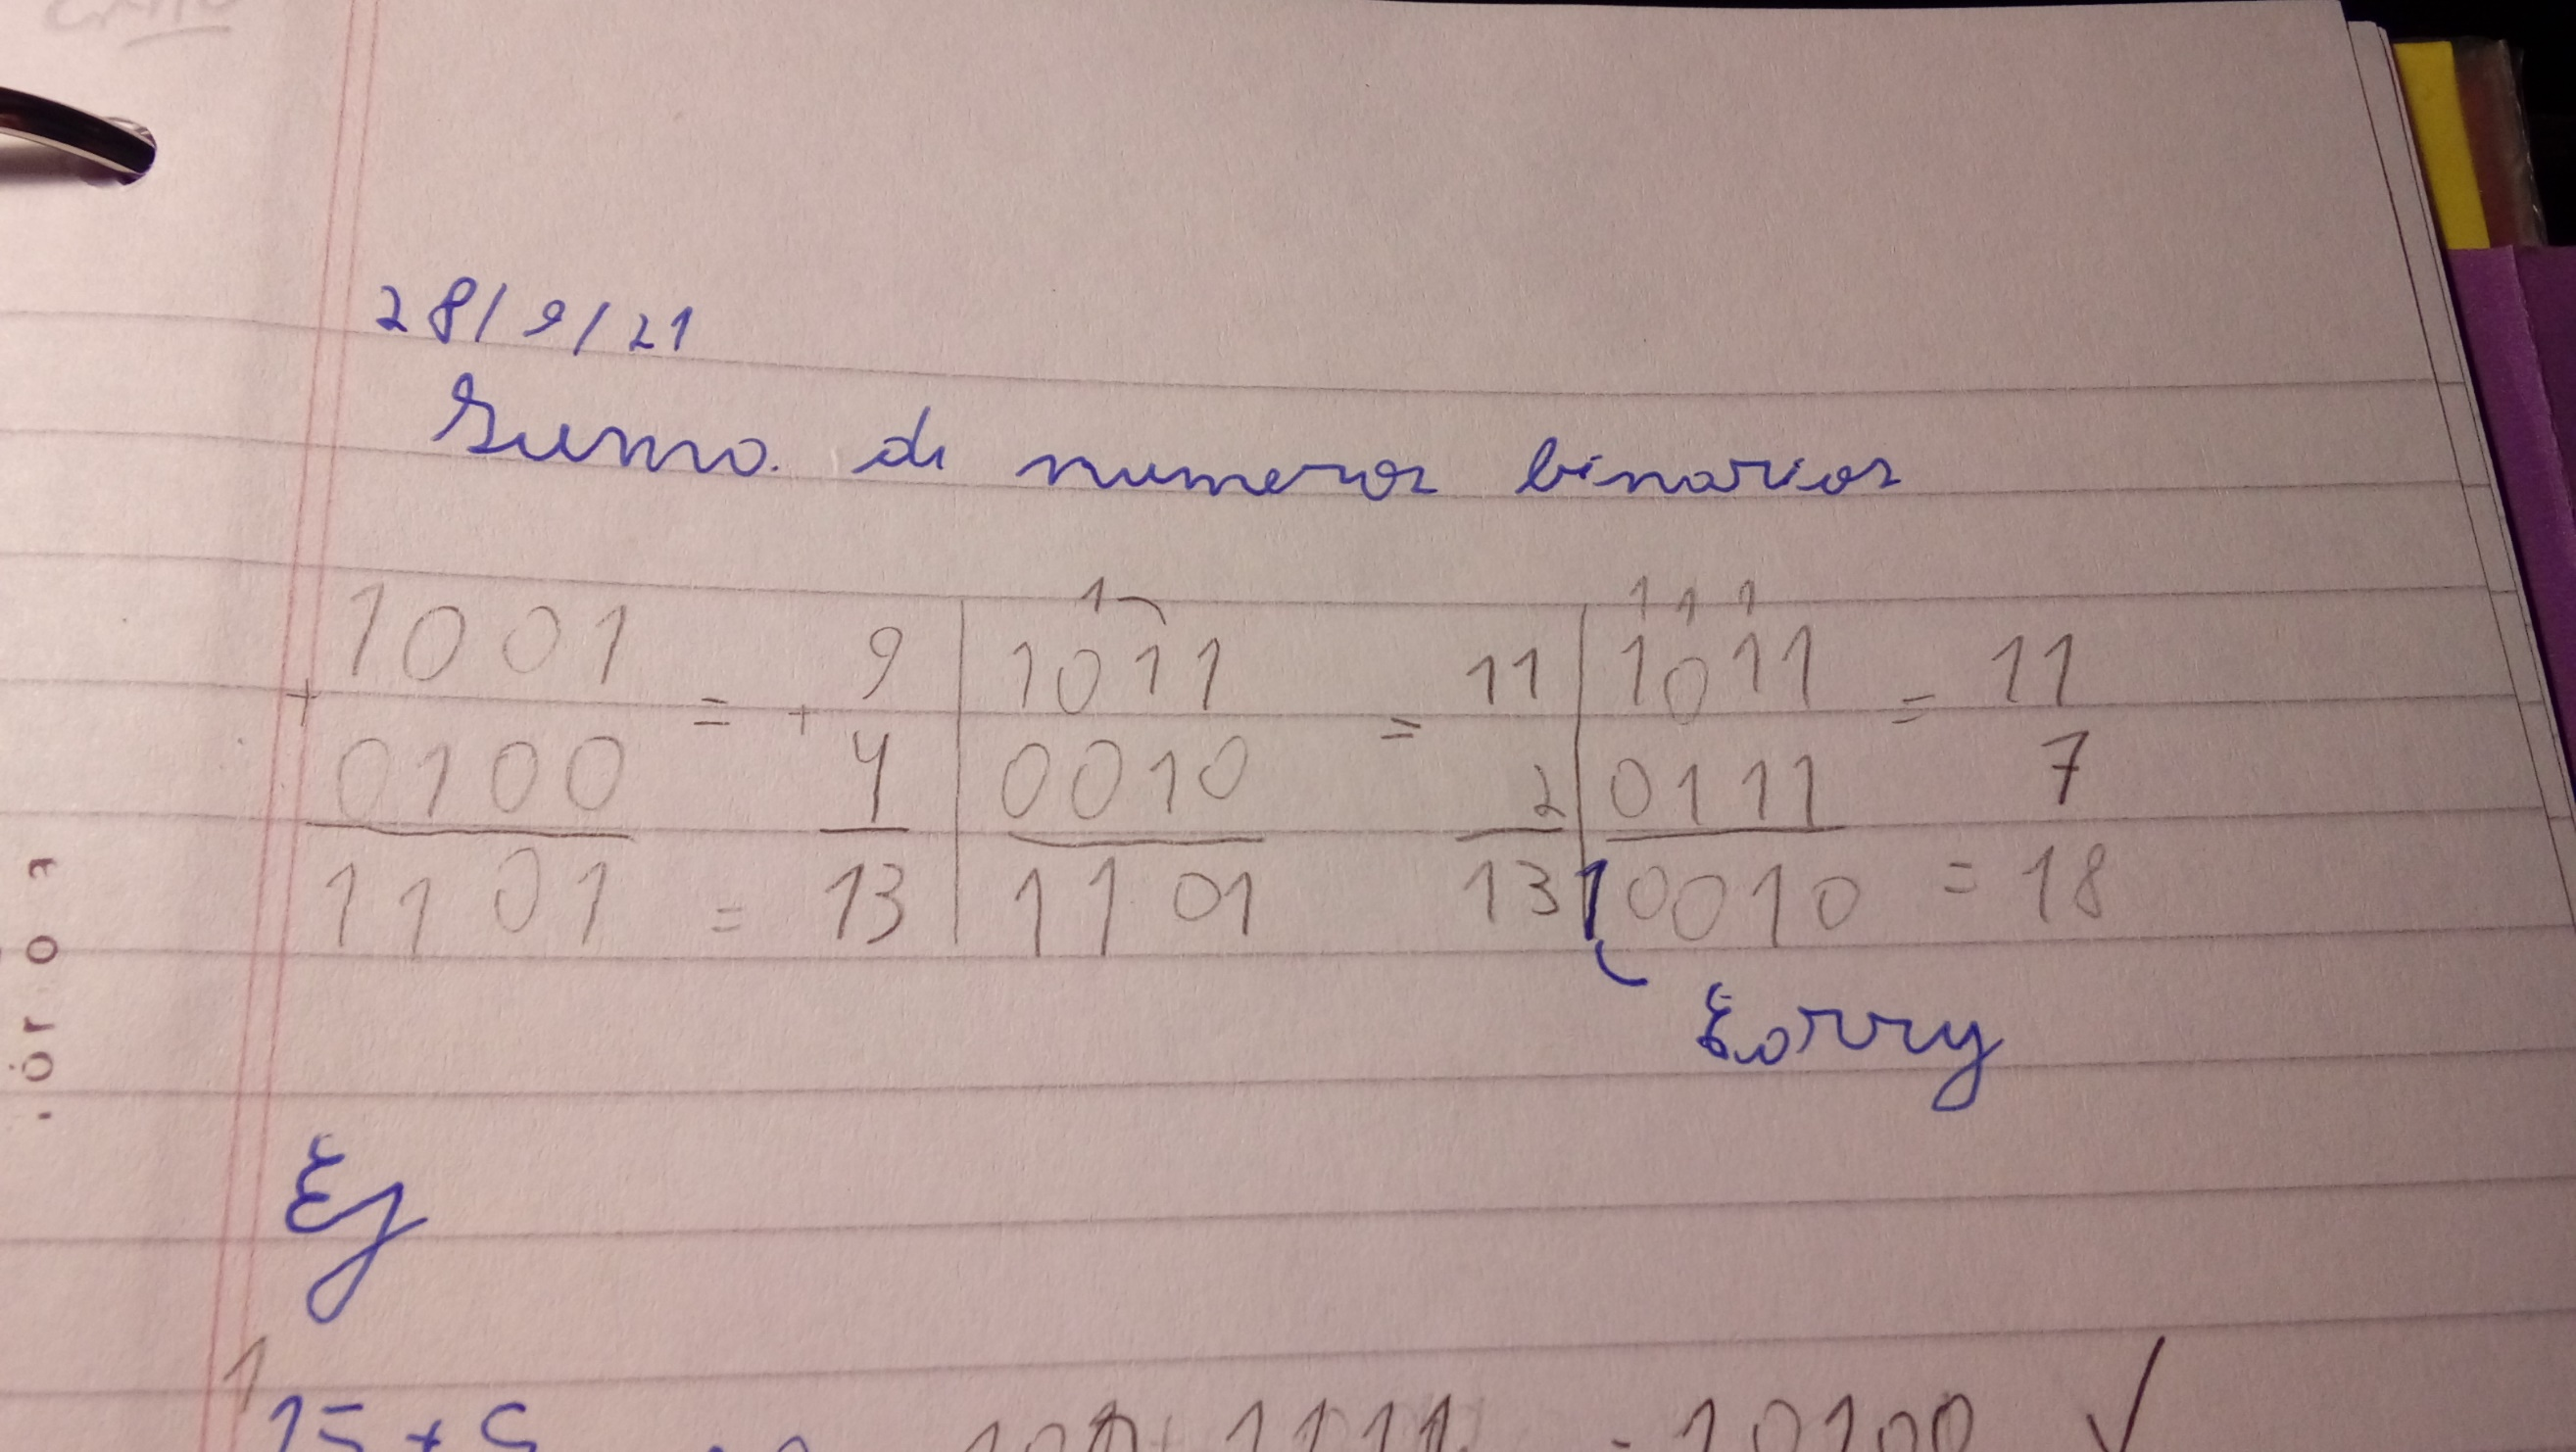 28/9/21
Suma de numeros binarios
1 1 1 1
1001 9 | 1011 11 | 1011 = 11
+ = + =
0100 4 | 0010 2 | 0111 7
1101 = 13 | 1101 13 | 10010 = 18
Carry
Ej
1
15 + 5 1111 = 10100 ✓